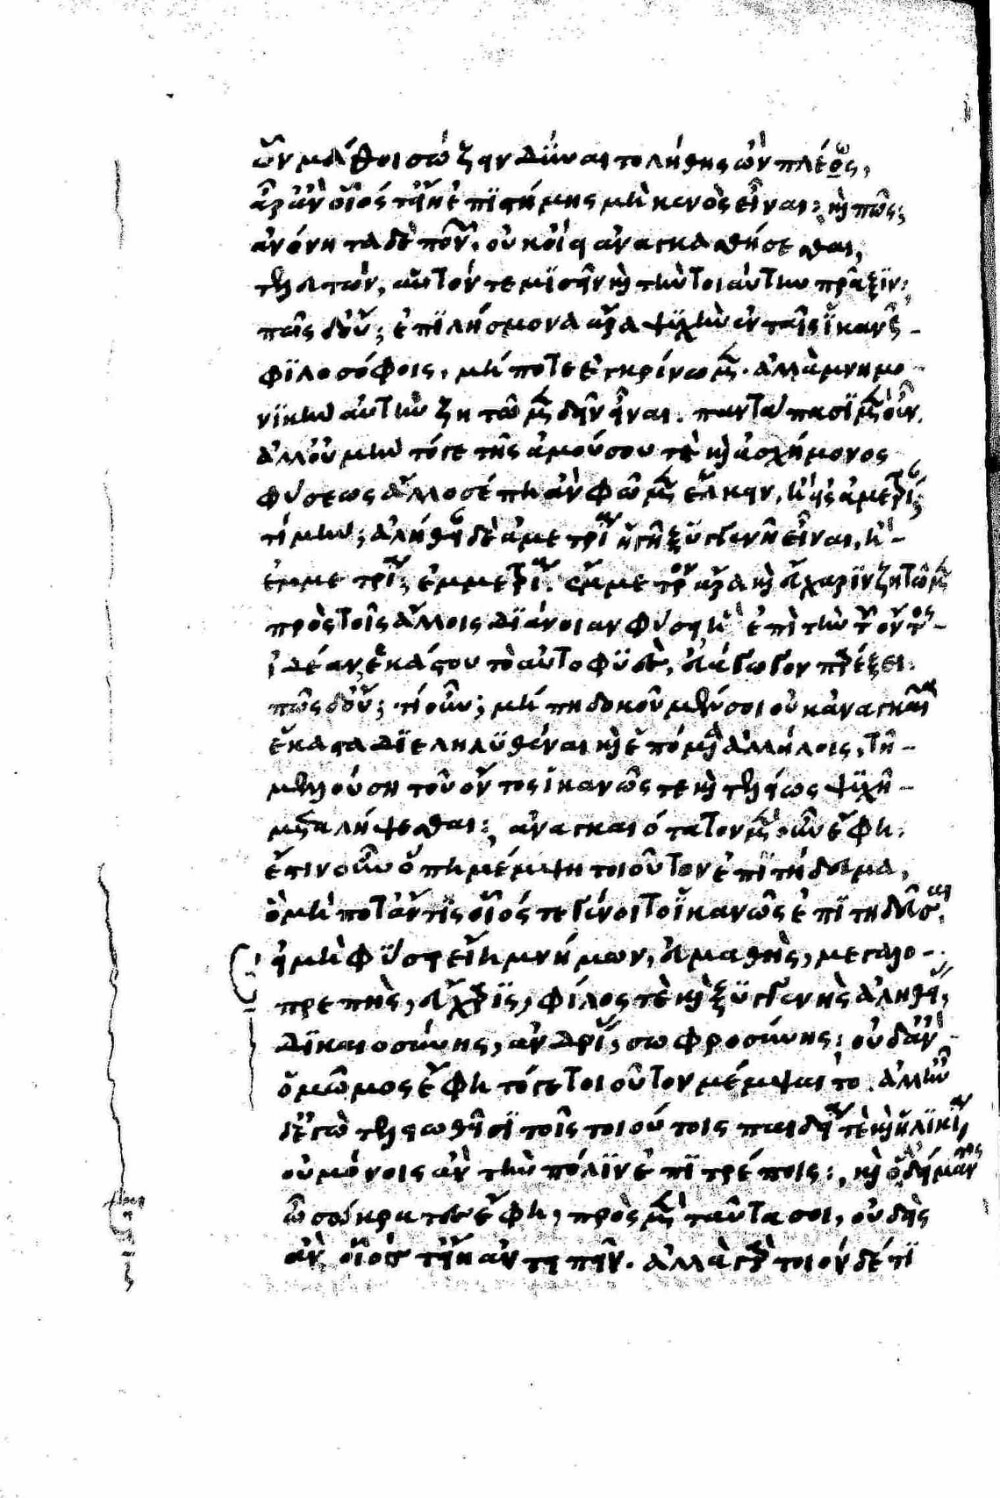 ὧν μάθοι σώζειν δύναιτο λήθης ὢν πλέως,
ἆρ' ἂν οἷός τ' εἴη ἐπιστήμης μὴ κενὸς εἶναι: καὶ πῶς;
ἀνόνητα δὲ πονῶν, οὐκ οἴει ἀναγκασθήσεσθαι,
τελευτῶν, αὑτόν τε μισεῖν καὶ τὴν τοιαύτην πρᾶξιν:
πῶς δ' οὔ; ἐπιλήσμονα ἄρα ψυχὴν ἐν ταῖς ἱκανῶς
φιλοσόφοις, μή ποτε ἐγκρίνωμεν. ἀλλὰ μνημο-
νικὴν αὐτὴν ζητῶμεν δεῖν εἶναι. παντάπασι μὲν οὖν.
ἀλλ' οὐ μὴν τό γε τῆς ἀμούσου τε καὶ ἀσχήμονος
φύσεως ἄλλοσέ ποι ἂν φῶμεν ἕλκειν, ἢ εἰς ἀμετρίαν;
τί μήν; ἀλήθειαν δὲ ἀμετρίᾳ ἡγεῖ ξυγγενῆ εἶναι, ἢ
ἐμμετρίᾳ; ἐμμετρίᾳ. ἔμμετρον ἄρα καὶ εὔχαριν ζητῶμεν
πρὸς τοῖς ἄλλοις διάνοιαν φύσει ἣ ἐπὶ τὴν τοῦ ὄντος
ἰδέαν ἑκάστου τὸ αὐτοφυὲς, εὐάγωγον παρέξει:
πῶς δ' οὔ; τί οὖν; μή πῃ δοκοῦμέν σοι οὐκ ἀναγκαῖα
ἕκαστα διεληλυθέναι καὶ ἑπόμενα ἀλλήλοις, τῇ
μελλούσῃ τοῦ ὄντος ἱκανῶς τε καὶ τελέως ψυχῇ
μεταλήψεσθαι: ἀναγκαιότατα μὲν οὖν ἔφη:
ἔστιν οὖν ὅπῃ μέμψῃ τοιοῦτον ἐπιτήδευμα,
ὃ μή ποτ' ἄν τις οἷός τε γένοιτο ἱκανῶς ἐπιτηδεῦσαι,
εἰ μὴ φύσει εἴη μνήμων, εὐμαθὴς, μεγαλο-
πρεπὴς, εὔχαρις, φίλος τε καὶ ξυγγενὴς ἀληθείας,
δικαιοσύνης, ἀνδρείας, σωφροσύνης: οὐδ' ἂν
ὁ μῶμος ἔφη τό γε τοιοῦτον μέμψαιτο. ἀλλ' ἦν
δ' ἐγὼ τελειωθεῖσι τοῖς τοιούτοις παιδείᾳ τε καὶ ἡλικίᾳ
οὐ μόνοις ἂν τὴν πόλιν ἐπιτρέποις: καὶ ὁ ἀδείμαντος
ὦ σώκρατες ἔφη, πρὸς μὲν ταῦτα σοι, οὐδεὶς
ἂν οἷός τ' εἴη ἀντειπεῖν. ἀλλὰ γὰρ τοιόνδέ τι